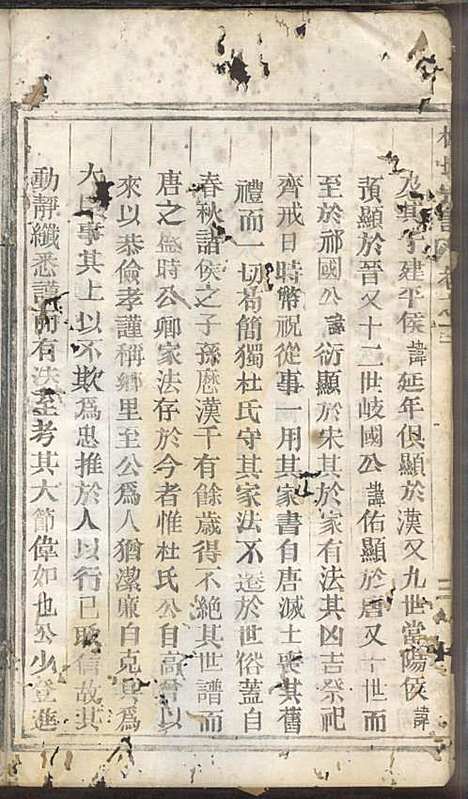 及其子建平侯諱延年俱顯於漢又九世當陽侯諱
預顯於晉又十二世岐國公諱佑顯於唐又十世而
至於祁國公諱衍顯於宋其於家有法其凶吉祭祀
齊戒日時幣祝從事一用其家書自唐滅士喪其舊
禮而一切苟簡獨杜氏守其家法不遷於世俗蓋自
春秋諸侯之子孫歷漢千有餘歲得不絕其世譜而
唐之盛時公卿家法存於今者惟杜氏公自高曾以
來以恭儉孝謹稱鄉里至公為人猶潔廉自克其為
大臣事其上以不欺為忠推於人以行己取信故其
動靜纖悉謹而有法至考其大節偉如也公少登進